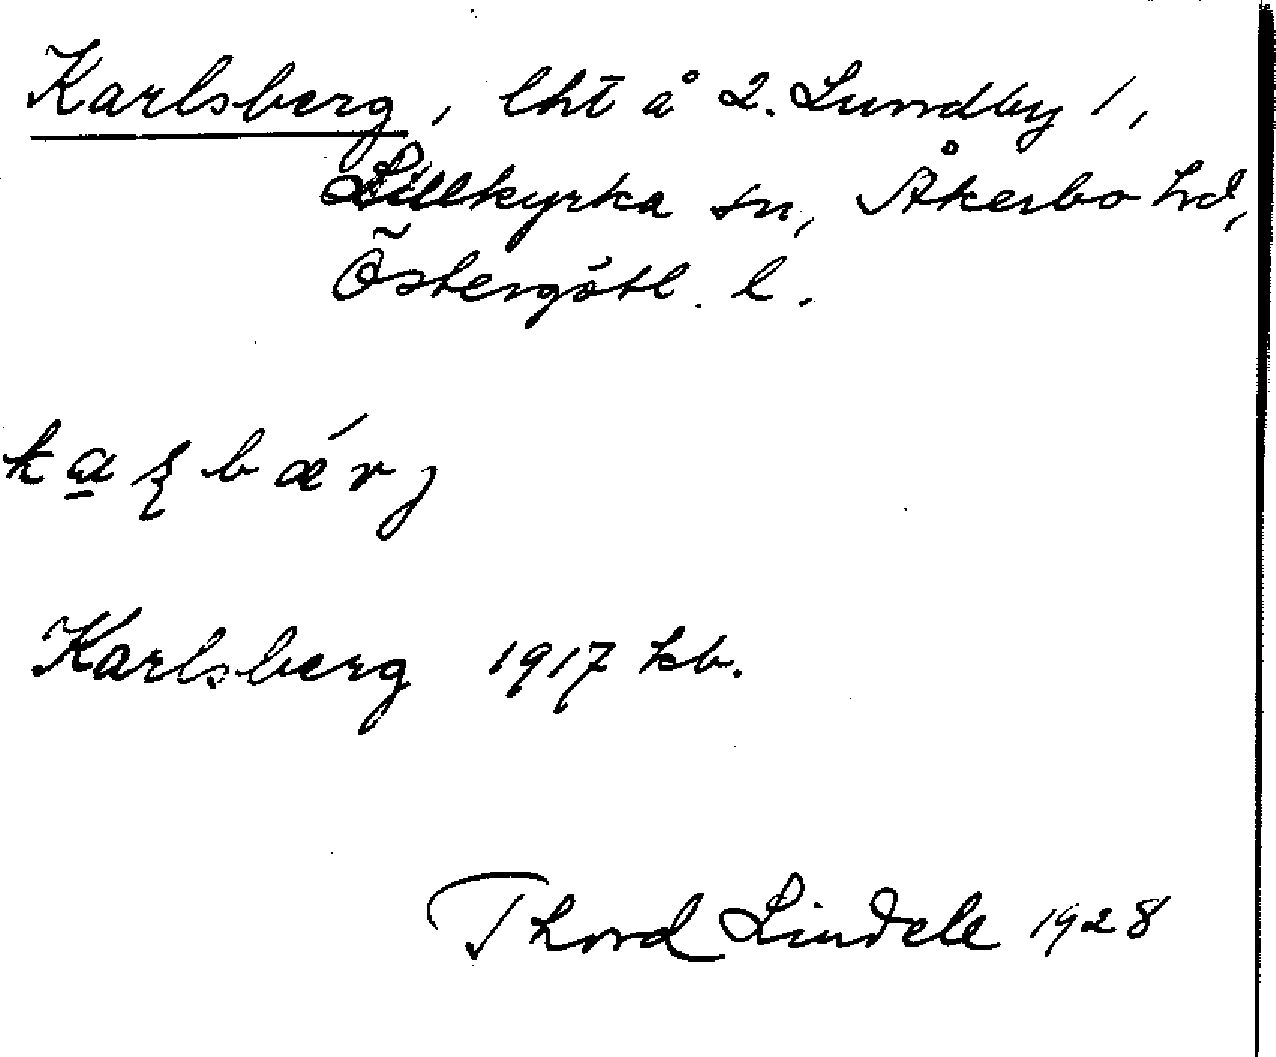 Karlsberg, lht å 2. Lundby 1,
Lillkyrka sn, Åkerbo hd,
Östergötl. l.
ka̲ʂbǽrj
Karlsberg 1917 kb.
Thord Lindele 1928